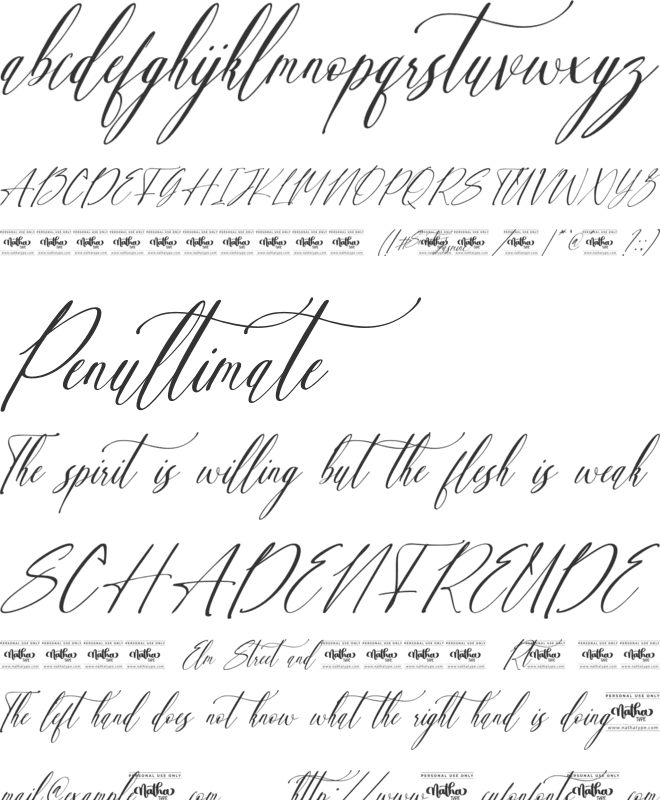 abcdefghijklmnopqrstuvwxyz
ABCDEFGHIJKLMNOPQRSTUVWXYZ
PERSONAL USE ONLY Natha TYPE www.nathatype.com (!# / | "'@ ?:;)
Penultimate
The spirit is willing but the flesh is weak
SCHADENFREUDE
PERSONAL USE ONLY Natha TYPE www.nathatype.com Elm Street and Rt
The left hand does not know what the right hand is doing
mail@example com http://www com